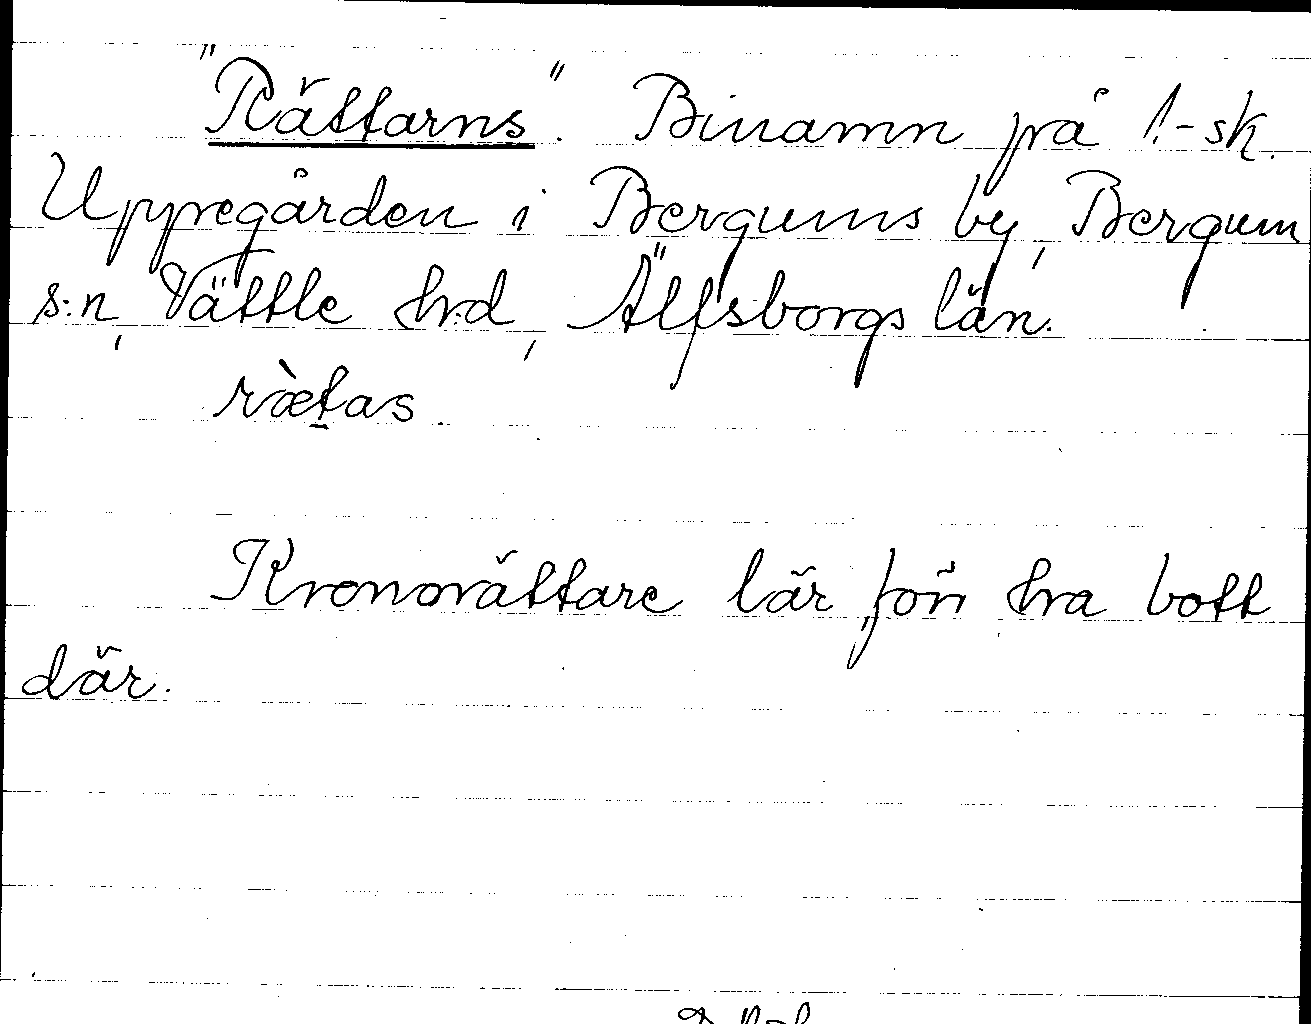 "Rättarns". Binamn på 1.-sk.
Uppregården i Bergums by, Bergum
s:n, Vättle h:d, Älfsborgs län.
ràetas
Kronorättare lär förr ha bott
där.